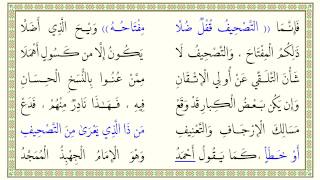 فَإِنَّمَا «التَّصْحِيفُ قُفْلٌ ضَلَّا مِفْتَاحُهُ» وَيْحَ الَّذِي أَضَلَّا
ذَلِكُمُ الْمِفْتَاحَ . وَالتَّصْحِيفُ لَا يَكُونُ إِلَّا مِن كَسُولٍ أَهْمَلَا
شَأْنَ التَّلَقِّي عَنْ أُولِي الْإِتْقَانِ مِمَّنْ عُنُوا بِالنُّسَخِ الْحِسَانِ
وَإِن يَكُن بَعْضُ الْكِبَارِ قَدْ وَقَعْ فِيهِ ، فَهَذَا نَادِرٌ مِنْهُمْ ، فَدَعْ
مَسَالِكَ الْإِرْجَافِ وَالتَّعْنِيفِ مَن ذَا الَّذِي يَعْرَىٰ مِنَ التَّصْحِيفِ
أَوْ خَطَأٍ ، كَمَا يَقُولُ أَحْمَدُ وَهْوَ الْإِمَامُ الْجِهْبِذُ الْمُمَجَّدُ